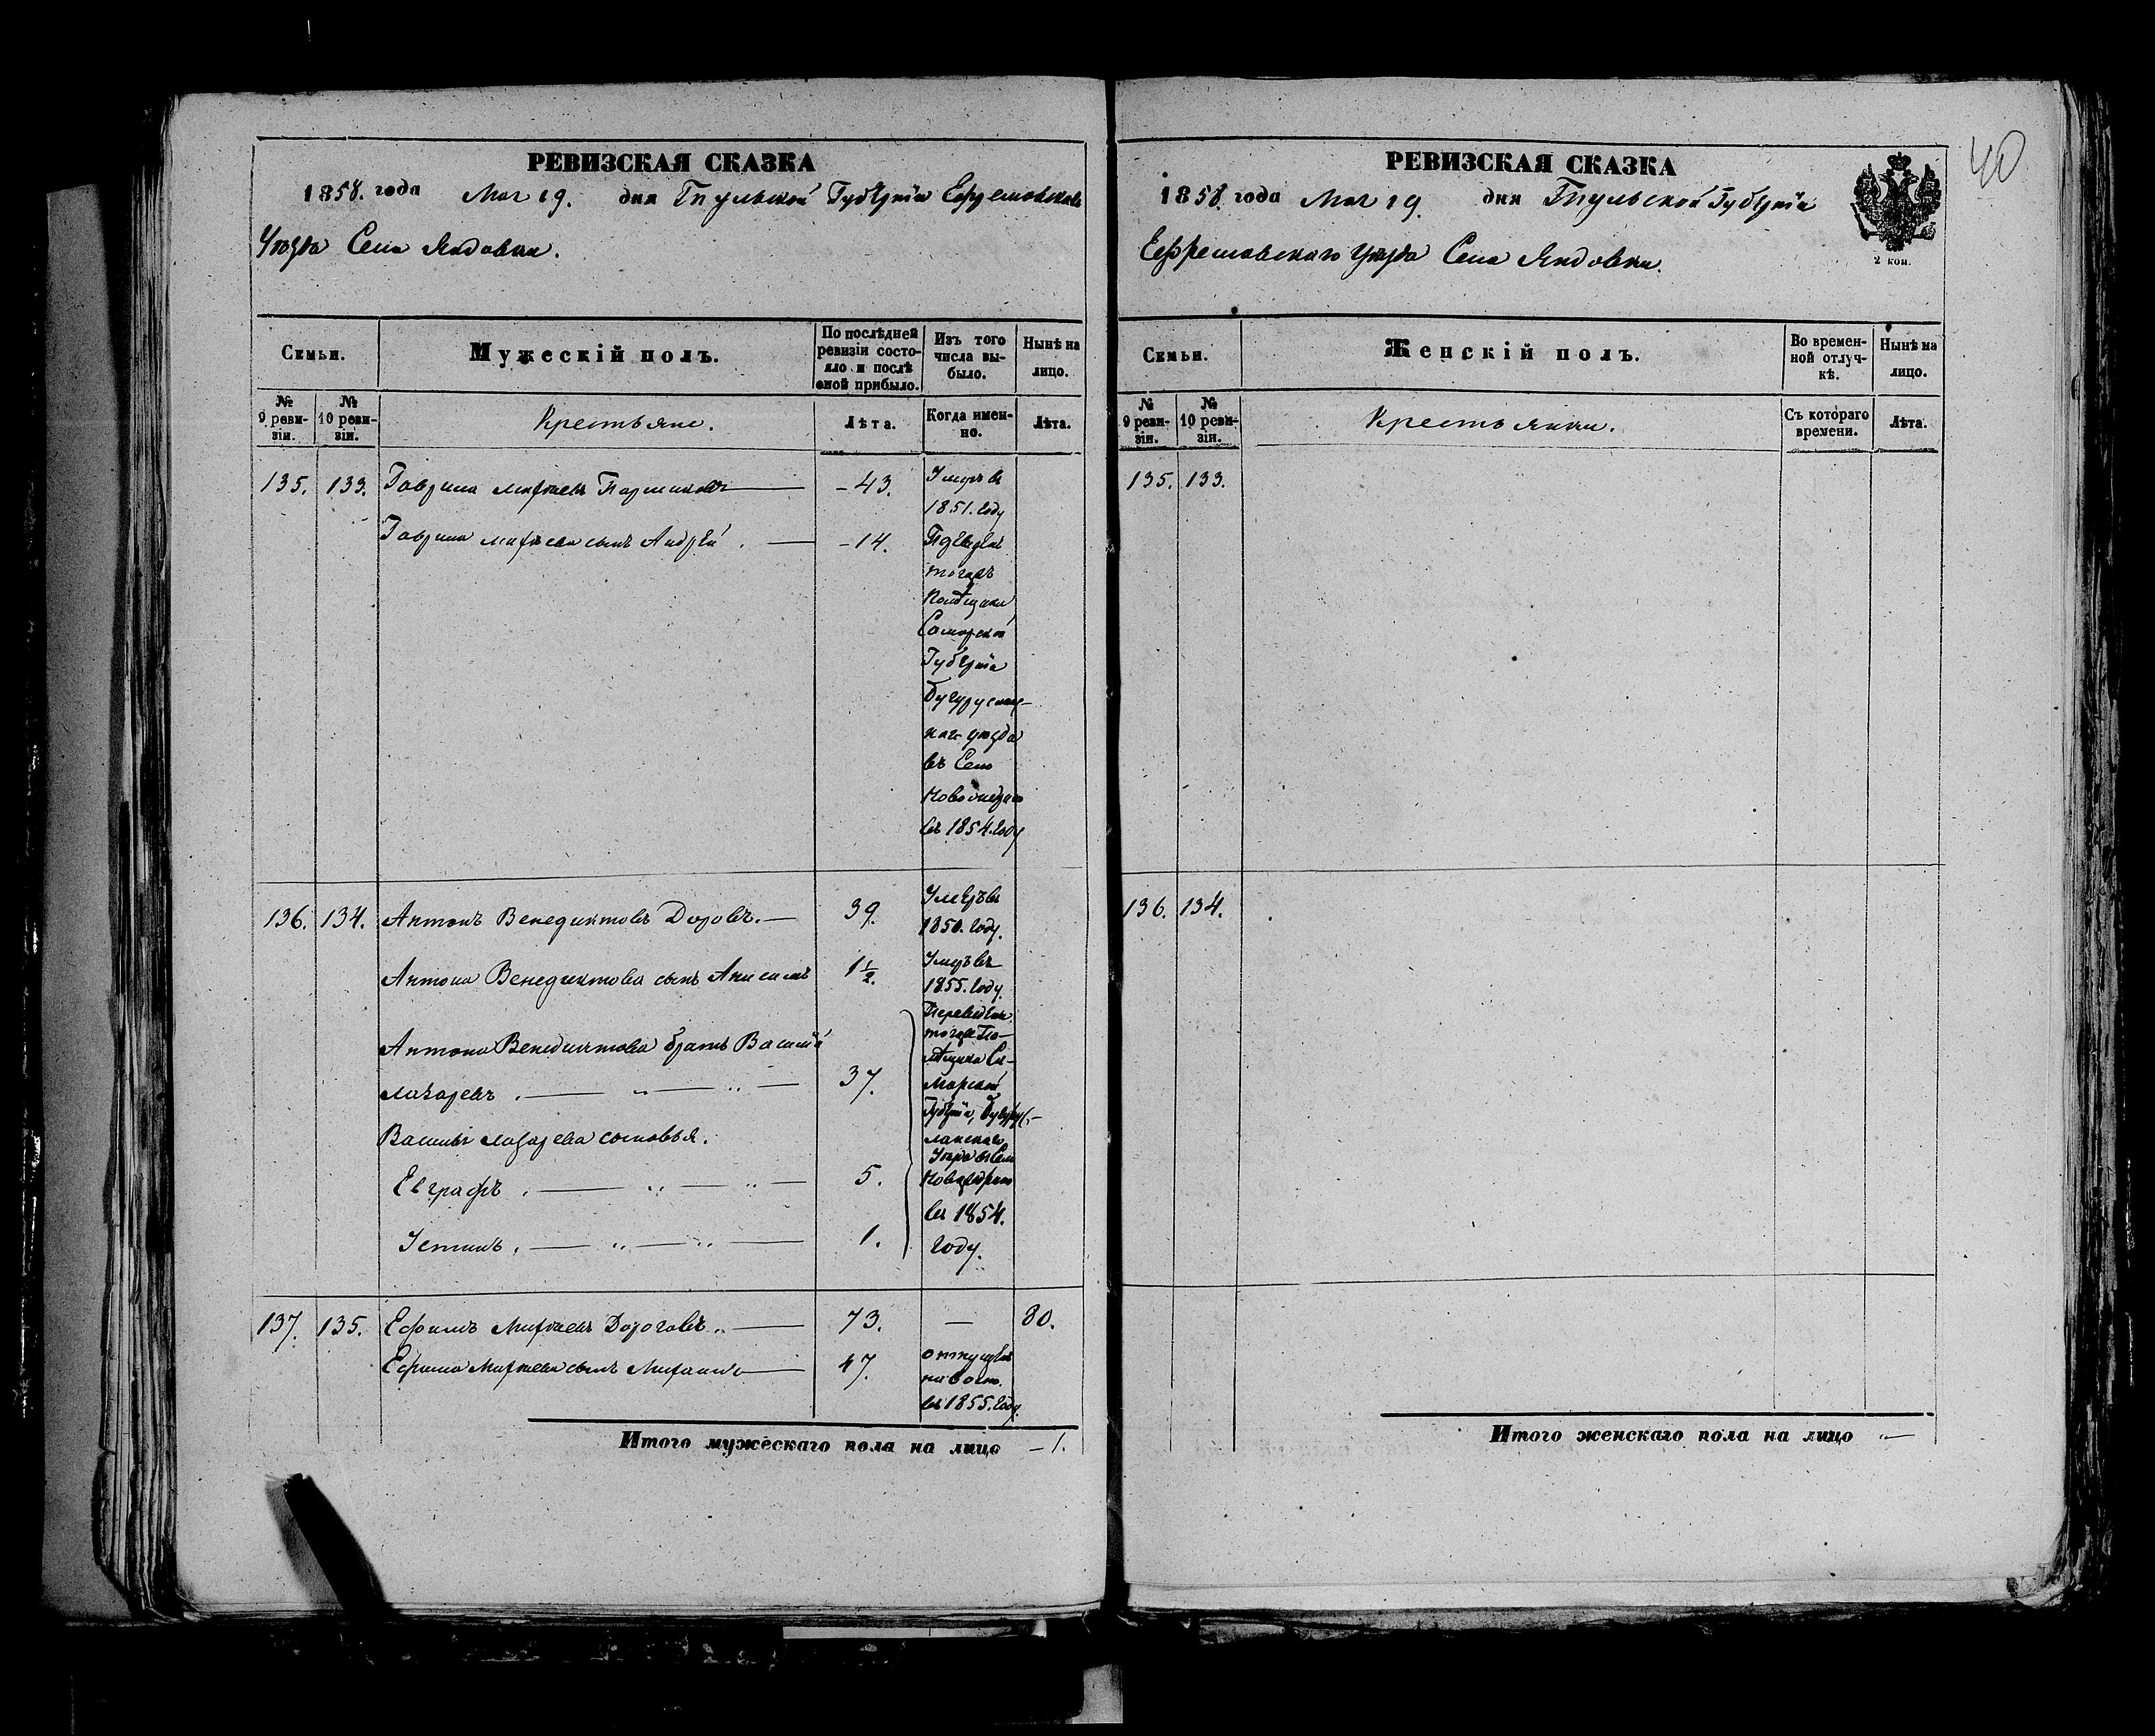 40
РЕВИЗСКАЯ СКАЗКА
1858. года Мая 19. дня Тульской Губерніи Ефремовскаго
Уѣзда Села Яндовки.
Семьи.
Мужескій полъ.
По послѣдней ревизіи состо-
яло и послѣ оной прибыло.
Изъ того числа вы-
было.
Нынѣ на лицо.
№ 9 реви-
зіи.
№ 10 реви-
зіи.
Крестьяне.
Лѣта.
Когда имен-
но.
Лѣта.
135. 133. Гаврила Михѣевъ — 43. Умеръ въ
1851. году
Гаврилы Михѣева сынъ Андрей. — 14.
тогожъ
Помѣщика
Самарской
Губерніи
Бугуруслан-
скаго уѣзда
въ Село
въ 1854. году
136. 134. Антонъ Венедиктовъ — 39. Умеръ въ
1850. году.
Антона Венедиктова сынъ Анисимъ 1½. Умеръ въ
1855. году.
Антона Венедиктова братъ Василій
Лазаревъ . — „ — „ — 37.
Василья Лазарева сыновья.
Евграфъ . — „ — „ — 5.
Устинъ . — „ — „ — 1.
Переведены
тогоже По-
мѣщика Са-
марской
Губерніи, Бугурус-
ланскаго
Уѣзда въ Село
въ 1854.
году.
137. 135. Ефимъ Михѣевъ „ — 73. — 80.
Ефима Михѣева сынъ Михаила — 47. отпущенъ
на волю.
въ 1855. году.
Итого мужескаго пола на лицо — 1.
РЕВИЗСКАЯ СКАЗКА
1858. года Мая 19. дня Тульской Губерніи
Ефремовскаго Уѣзда Села Яндовки.
2 коп.
Семьи.
Женскій полъ.
Во времен-
ной отлуч-
кѣ.
Нынѣ на лицо.
№ 9 реви-
зіи.
№ 10 реви-
зіи.
Крестьянки.
Съ котораго времени.
Лѣта.
135. 133.
136. 134.
Итого женскаго пола на лицо „—